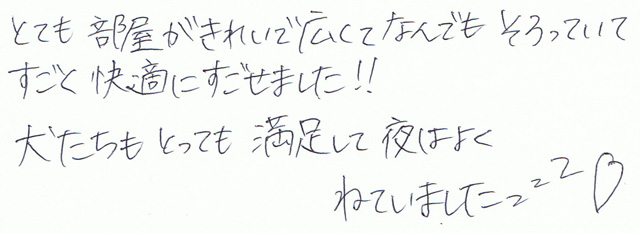 とても 部屋がきれいで広くてなんでも そろっていて
すごく 快適にすごせました!!
犬たちも とっても 満足して 夜はよく
ねていましたzzz♡